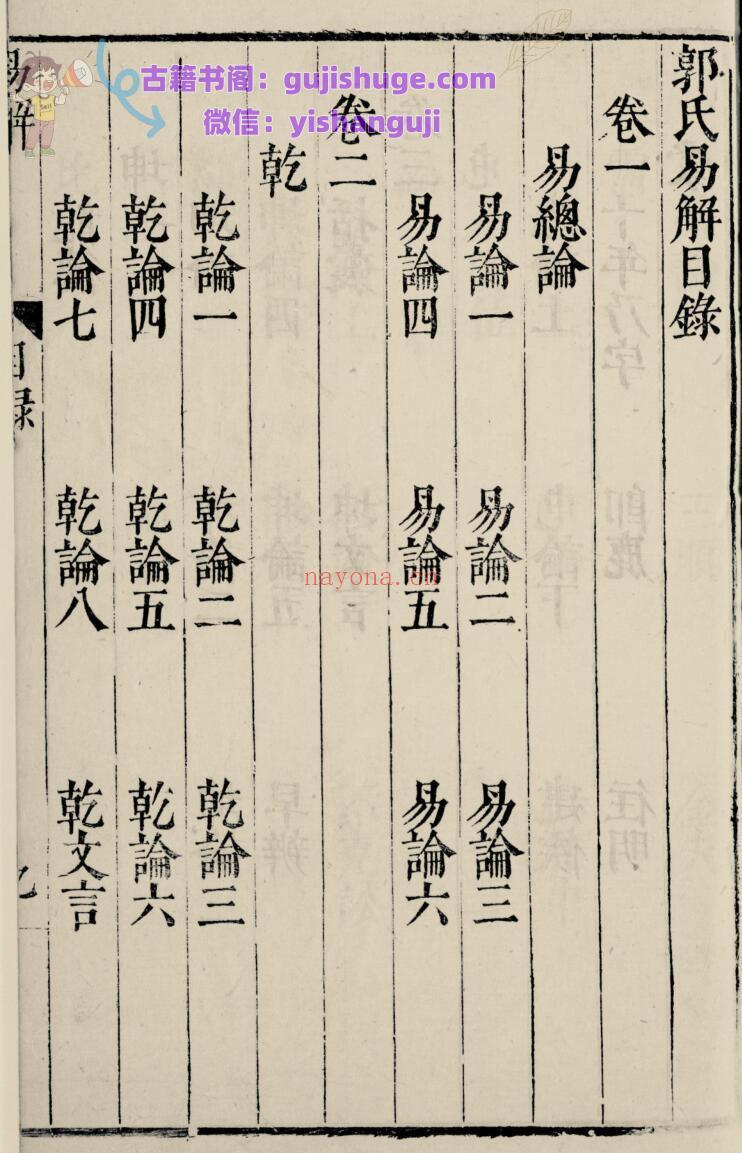 郭氏易解目錄
卷一
易總論
易論一 易論二 易論三
易論四 易論五 易論六
卷二
乾
乾論一 乾論二 乾論三
乾論四 乾論五 乾論六
乾論七 乾論八 乾文言
易解 目録
古籍书阁：gujishuge.com
微信：yishanguji
nayona.cn